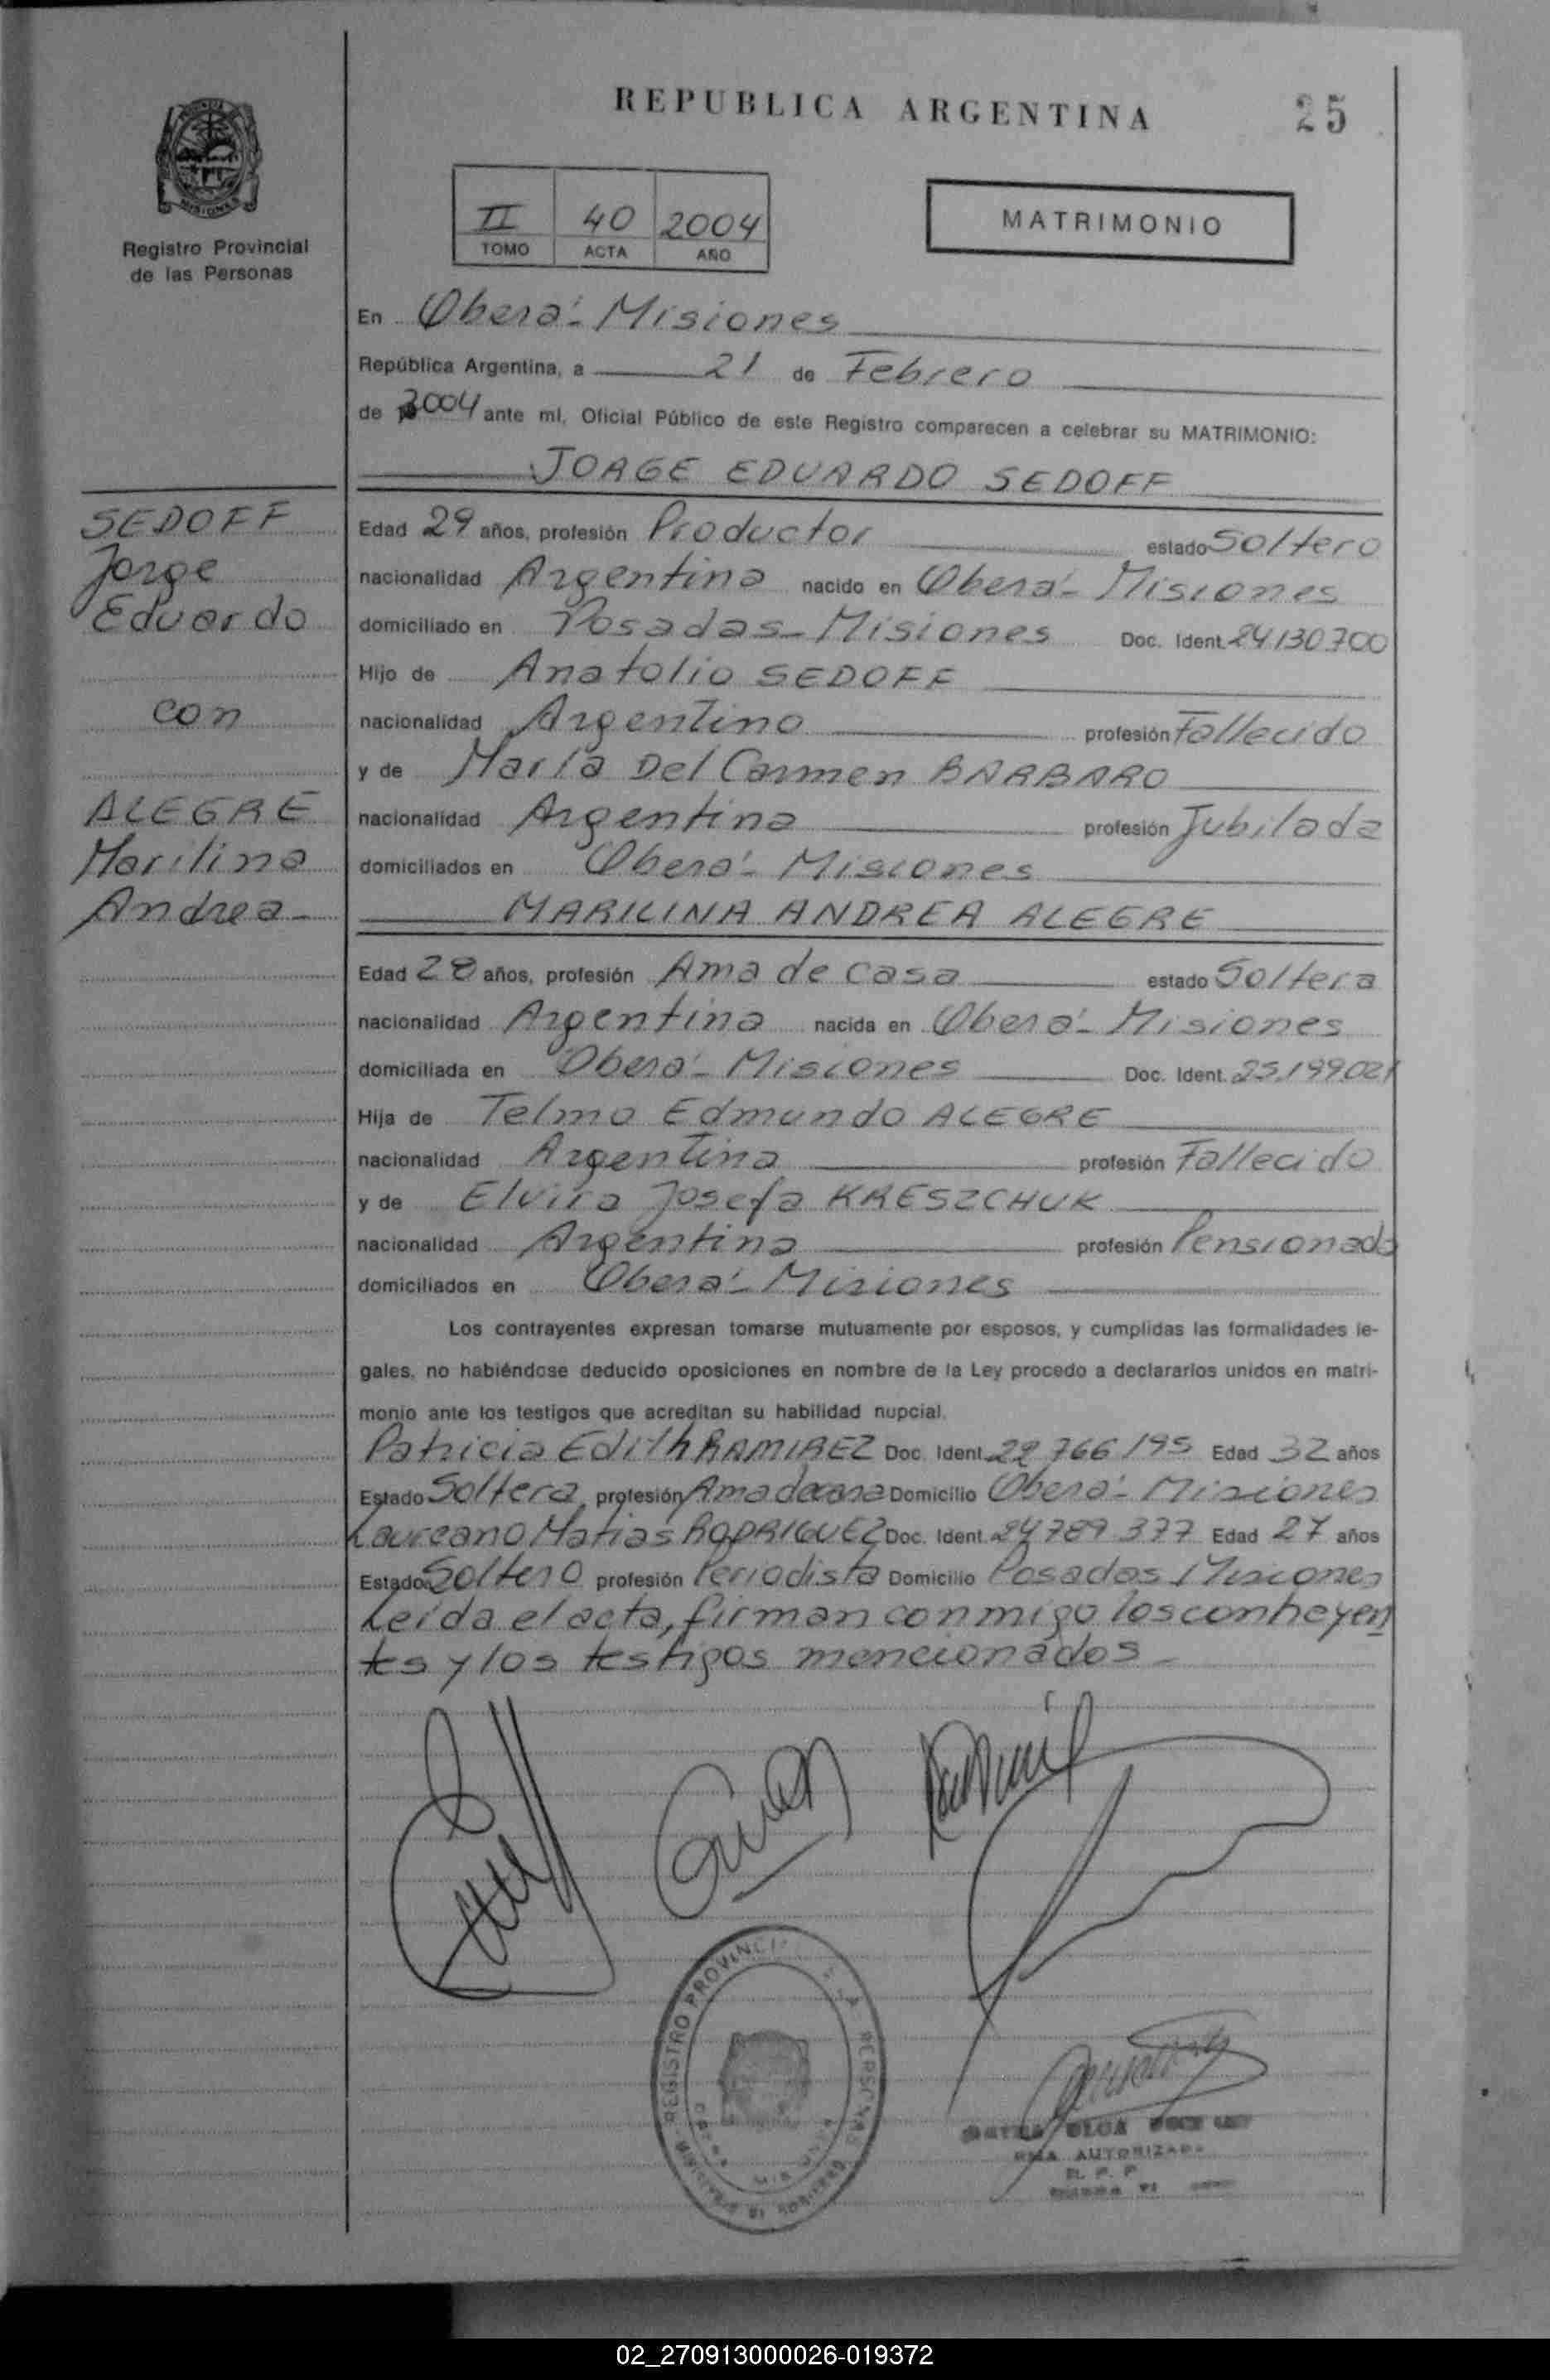 REPUBLICA ARGENTINA
25
Registro Provincial
de las Personas
II 40 2004
TOMO ACTA AÑO
MATRIMONIO
En Oberá - Misiones
República Argentina, a 21 de Febrero
de 2004 ante mí, Oficial Público de este Registro comparecen a celebrar su MATRIMONIO:
JORGE EDUARDO SEDOFF
SEDOFF
Jorge
Eduardo
con
ALEGRE
Marilina
Andrea-
Edad 29 años, profesión Productor estado Soltero
nacionalidad Argentina nacido en Oberá - Misiones
domiciliado en Posadas - Misiones Doc. Ident. 24.130.700
Hijo de Anatolio SEDOFF
nacionalidad Argentino profesión Fallecido
y de María Del Carmen BARBARO
nacionalidad Argentina profesión Jubilada
domiciliados en Oberá - Misiones
MARILINA ANDREA ALEGRE
Edad 28 años, profesión Ama de casa estado Soltera
nacionalidad Argentina nacida en Oberá - Misiones
domiciliada en Oberá - Misiones Doc. Ident. 25.199.021
Hija de Telmo Edmundo ALEGRE
nacionalidad Argentina profesión Fallecido
y de Elvira Josefa KRESZCHUK
nacionalidad Argentina profesión Pensionada
domiciliados en Oberá - Misiones
Los contrayentes expresan tomarse mutuamente por esposos, y cumplidas las formalidades le-
gales, no habiéndose deducido oposiciones en nombre de la Ley procedo a declararlos unidos en matri-
monio ante los testigos que acreditan su habilidad nupcial.
Patricia Edith RAMIREZ Doc. Ident. 22 766 195 Edad 32 años
Estado Soltera profesión Ama de casa Domicilio Oberá - Misiones
Laureano Matias RODRIGUEZ Doc. Ident. 24 789 377 Edad 27 años
Estado Soltero profesión Periodista Domicilio Posadas Misiones
Leída el acta, firman conmigo los contreyen
tes y los testigos mencionados -
REGISTRO PROVINCI PERSONAS
OLGA
AUTORIZADA
R. P. P
02_270913000026-019372